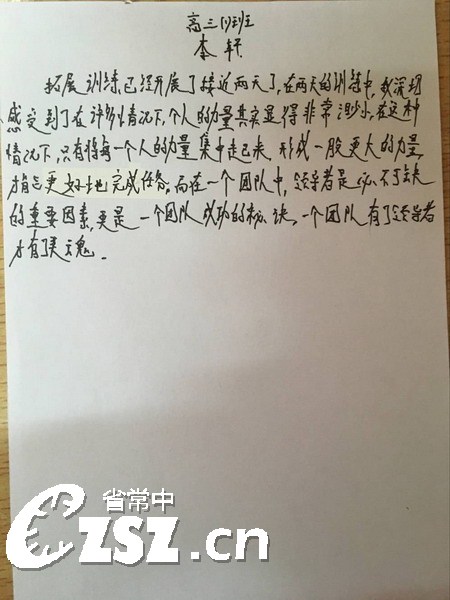 高三(1)班
李轩
拓展训练已经开展了接近两天了,在两天的训练中,我深切
感受到了在许多情况下,个人的力量其实显得非常渺小,在这种
情况下,只有将每一个人的力量集中起来,形成一股更大的力量,
才能更好地完成任务,而在一个团队中,领导者是必不可缺
的重要因素,更是一个团队成功的秘诀,一个团队有了领导者
才有了灵魂.
省常中
CZSZ.cn